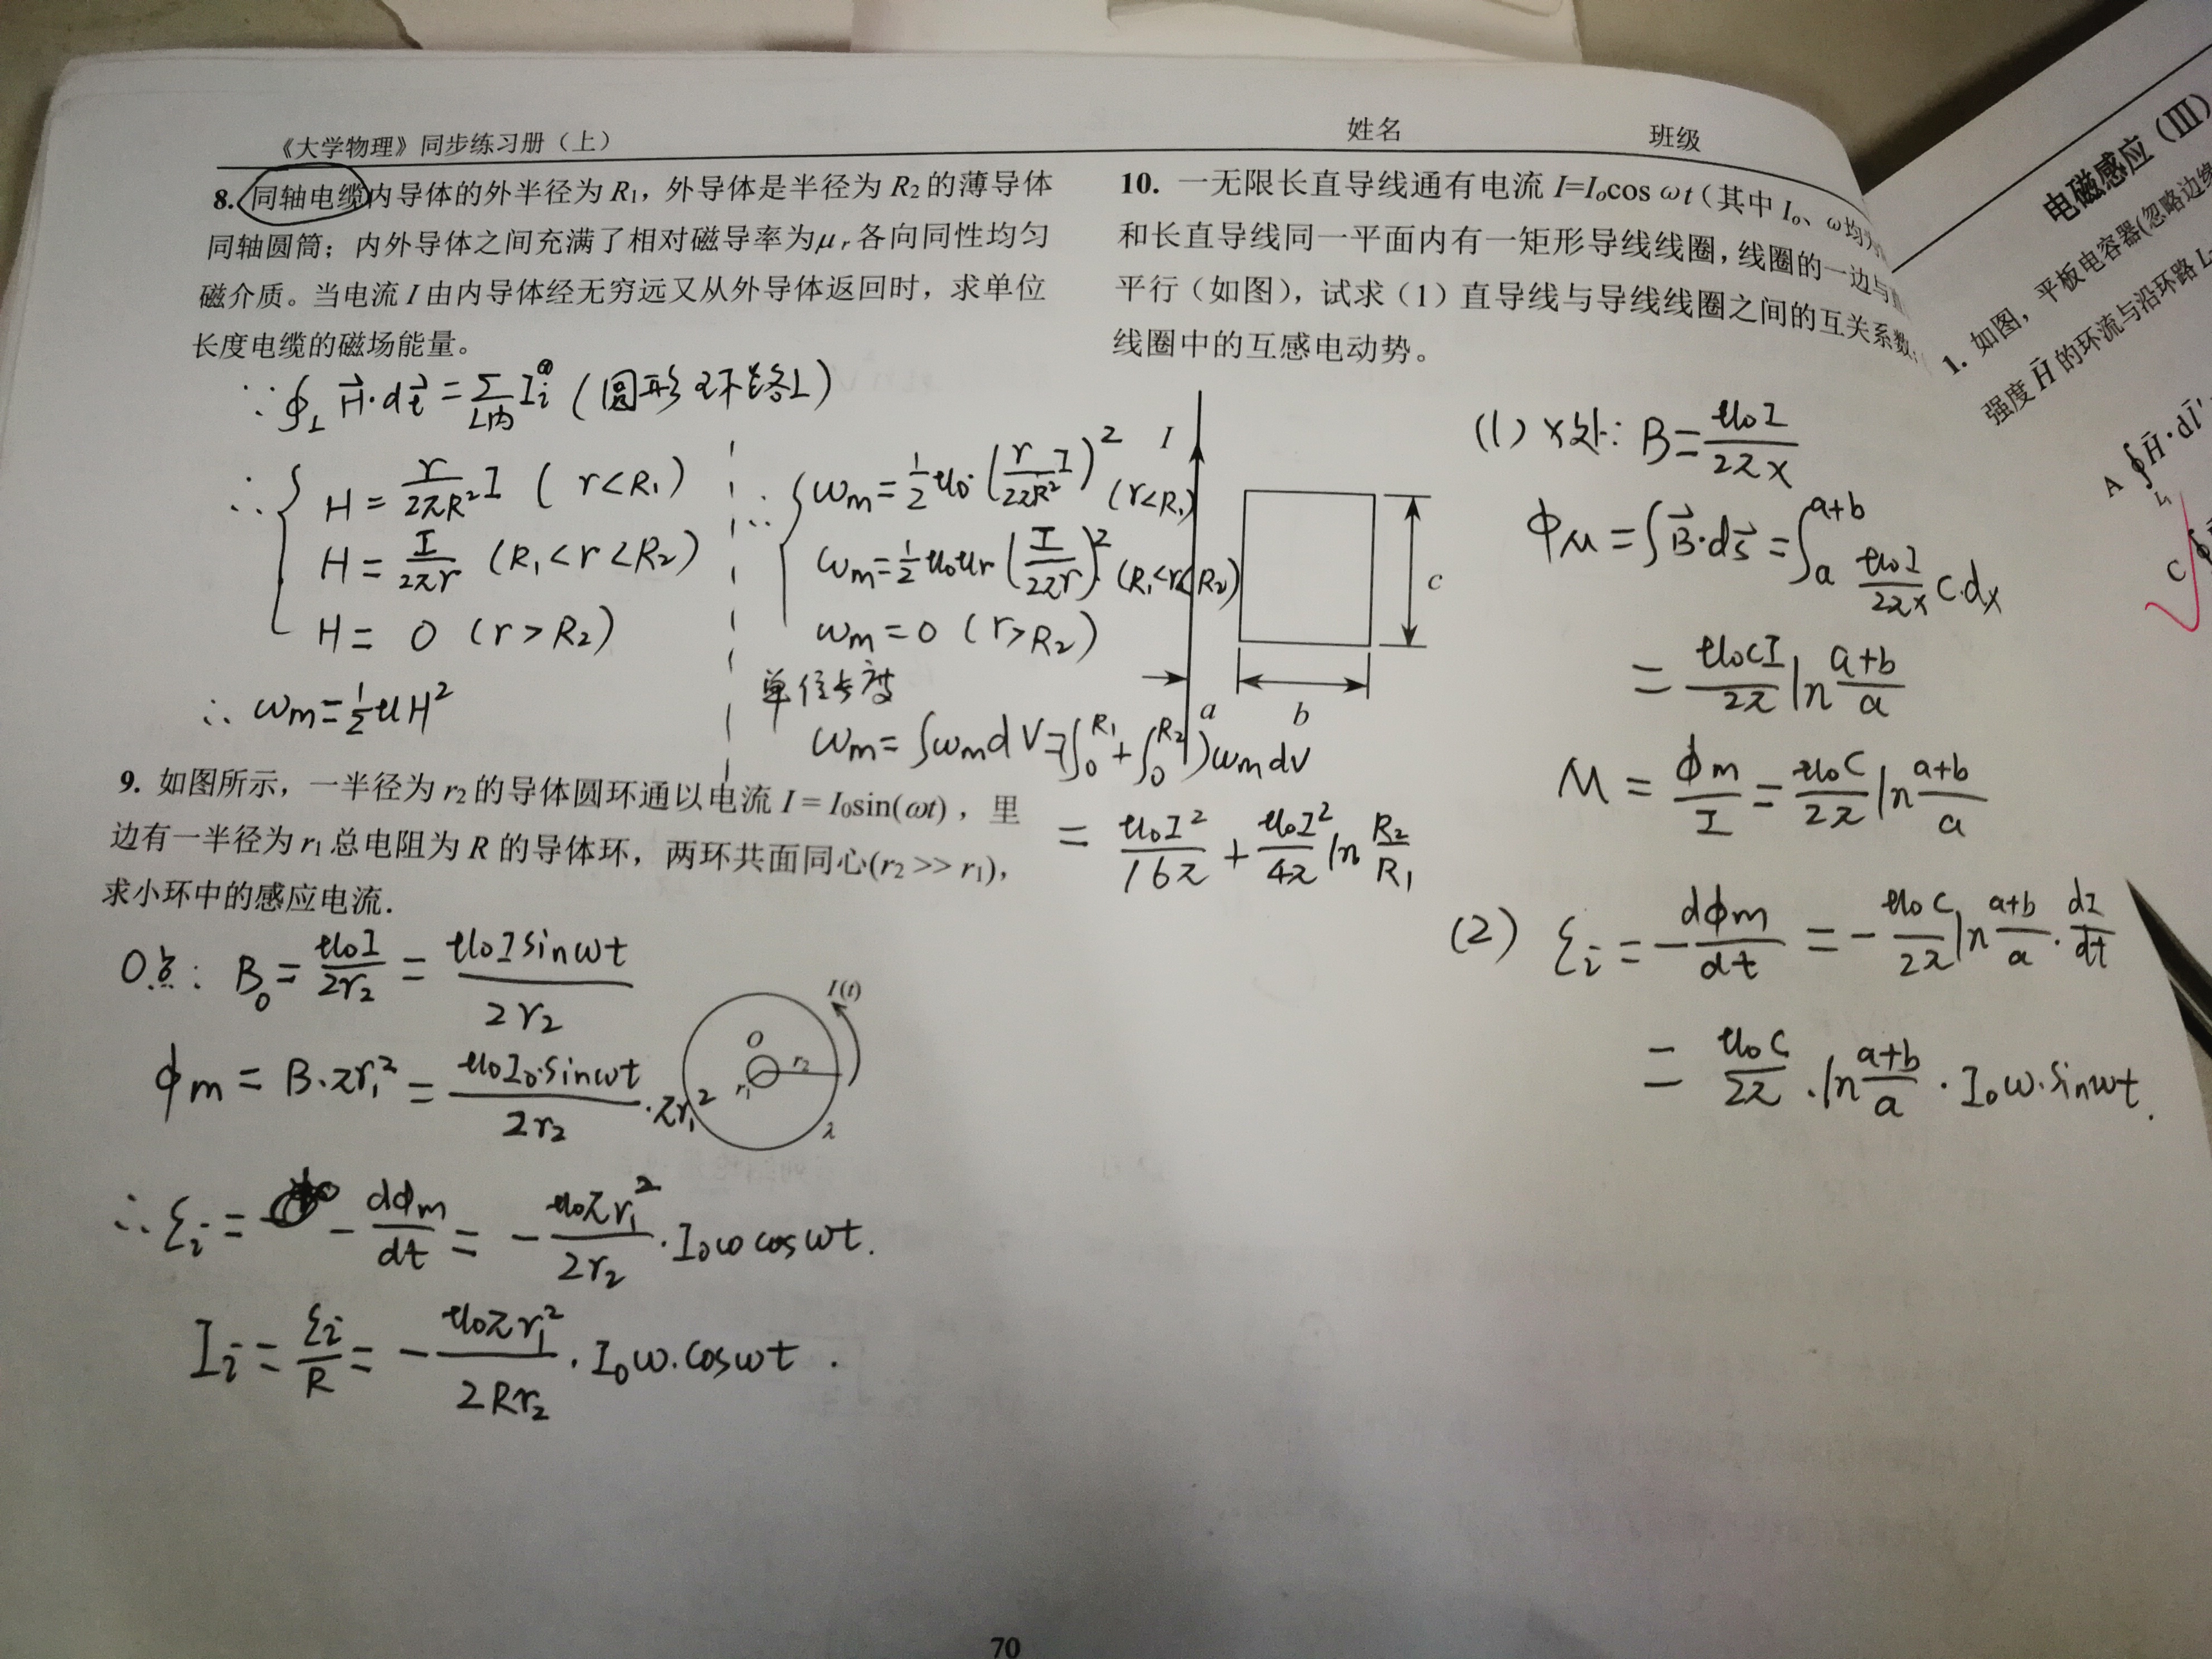 《大学物理》同步练习册（上）
姓名
班级
8. 同轴电缆内导体的外半径为R₁，外导体是半径为R₂的薄导体
同轴圆筒；内外导体之间充满了相对磁导率为μᵣ各向同性均匀
磁介质。当电流I由内导体经无穷远又从外导体返回时，求单位
长度电缆的磁场能量。
∵ ∮_L H⃗·dl⃗ = Σ_{L内} I_i (圆形环路L)
∴ { H = r/(2πR²) I ( r<R₁)
H = I/(2πr) (R₁<r<R₂)
H = 0 (r>R₂)
∴ ωm = ½μH²
∴ { ωm = ½μ₀·(r/(2πR²) I)² (r<R₁)
ωm = ½μ₀μr (I/(2πr))² (R₁<r<R₂)
ωm = 0 (r>R₂)
单位长度
ωm = ∫ωm dV = (∫₀^{R₁} + ∫₀^{R₂}) ωm dV
= μ₀I²/(16π) + μ₀I²/(4π) ln R₂/R₁
9. 如图所示，一半径为r₂的导体圆环通以电流 I = I₀sin(ωt)，里
边有一半径为r₁总电阻为R的导体环，两环共面同心(r₂ >> r₁)，
求小环中的感应电流.
O点: B₀ = μ₀I/(2r₂) = μ₀I sinωt/(2r₂)
ϕm = B·πr₁² = μ₀I₀·sinωt/(2r₂) ·πr₁²
∴ ε_i = - dϕm/dt = - μ₀πr₁²/(2r₂) · I₀ω cosωt.
I_i = ε_i/R = - μ₀πr₁²/(2Rr₂) · I₀ω·cosωt .
I(t)
O
r₂
r₁
λ
10. 一无限长直导线通有电流 I=I₀cos ωt（其中 I₀、ω均为
和长直导线同一平面内有一矩形导线线圈，线圈的一边与
平行（如图），试求（1）直导线与导线线圈之间的互关系数；
线圈中的互感电动势。
I
c
a
b
(1) x处: B = μ₀I/(2πx)
ϕM = ∫B⃗·dS⃗ = ∫_a^{a+b} μ₀I/(2πx) C·dx
= μ₀CI/(2π) ln (a+b)/a
M = ϕm/I = μ₀C/(2π) ln (a+b)/a
(2) ε_i = - dϕm/dt = - μ₀C/(2π) ln (a+b)/a · dI/dt
= μ₀C/(2π) · ln (a+b)/a · I₀ω·sinωt.
70
电磁感应（III）
1. 如图，平板电容器(忽略边缘
强度H⃗的环流与沿环路L
A ∮_{L₁} H⃗·dl⃗'
C